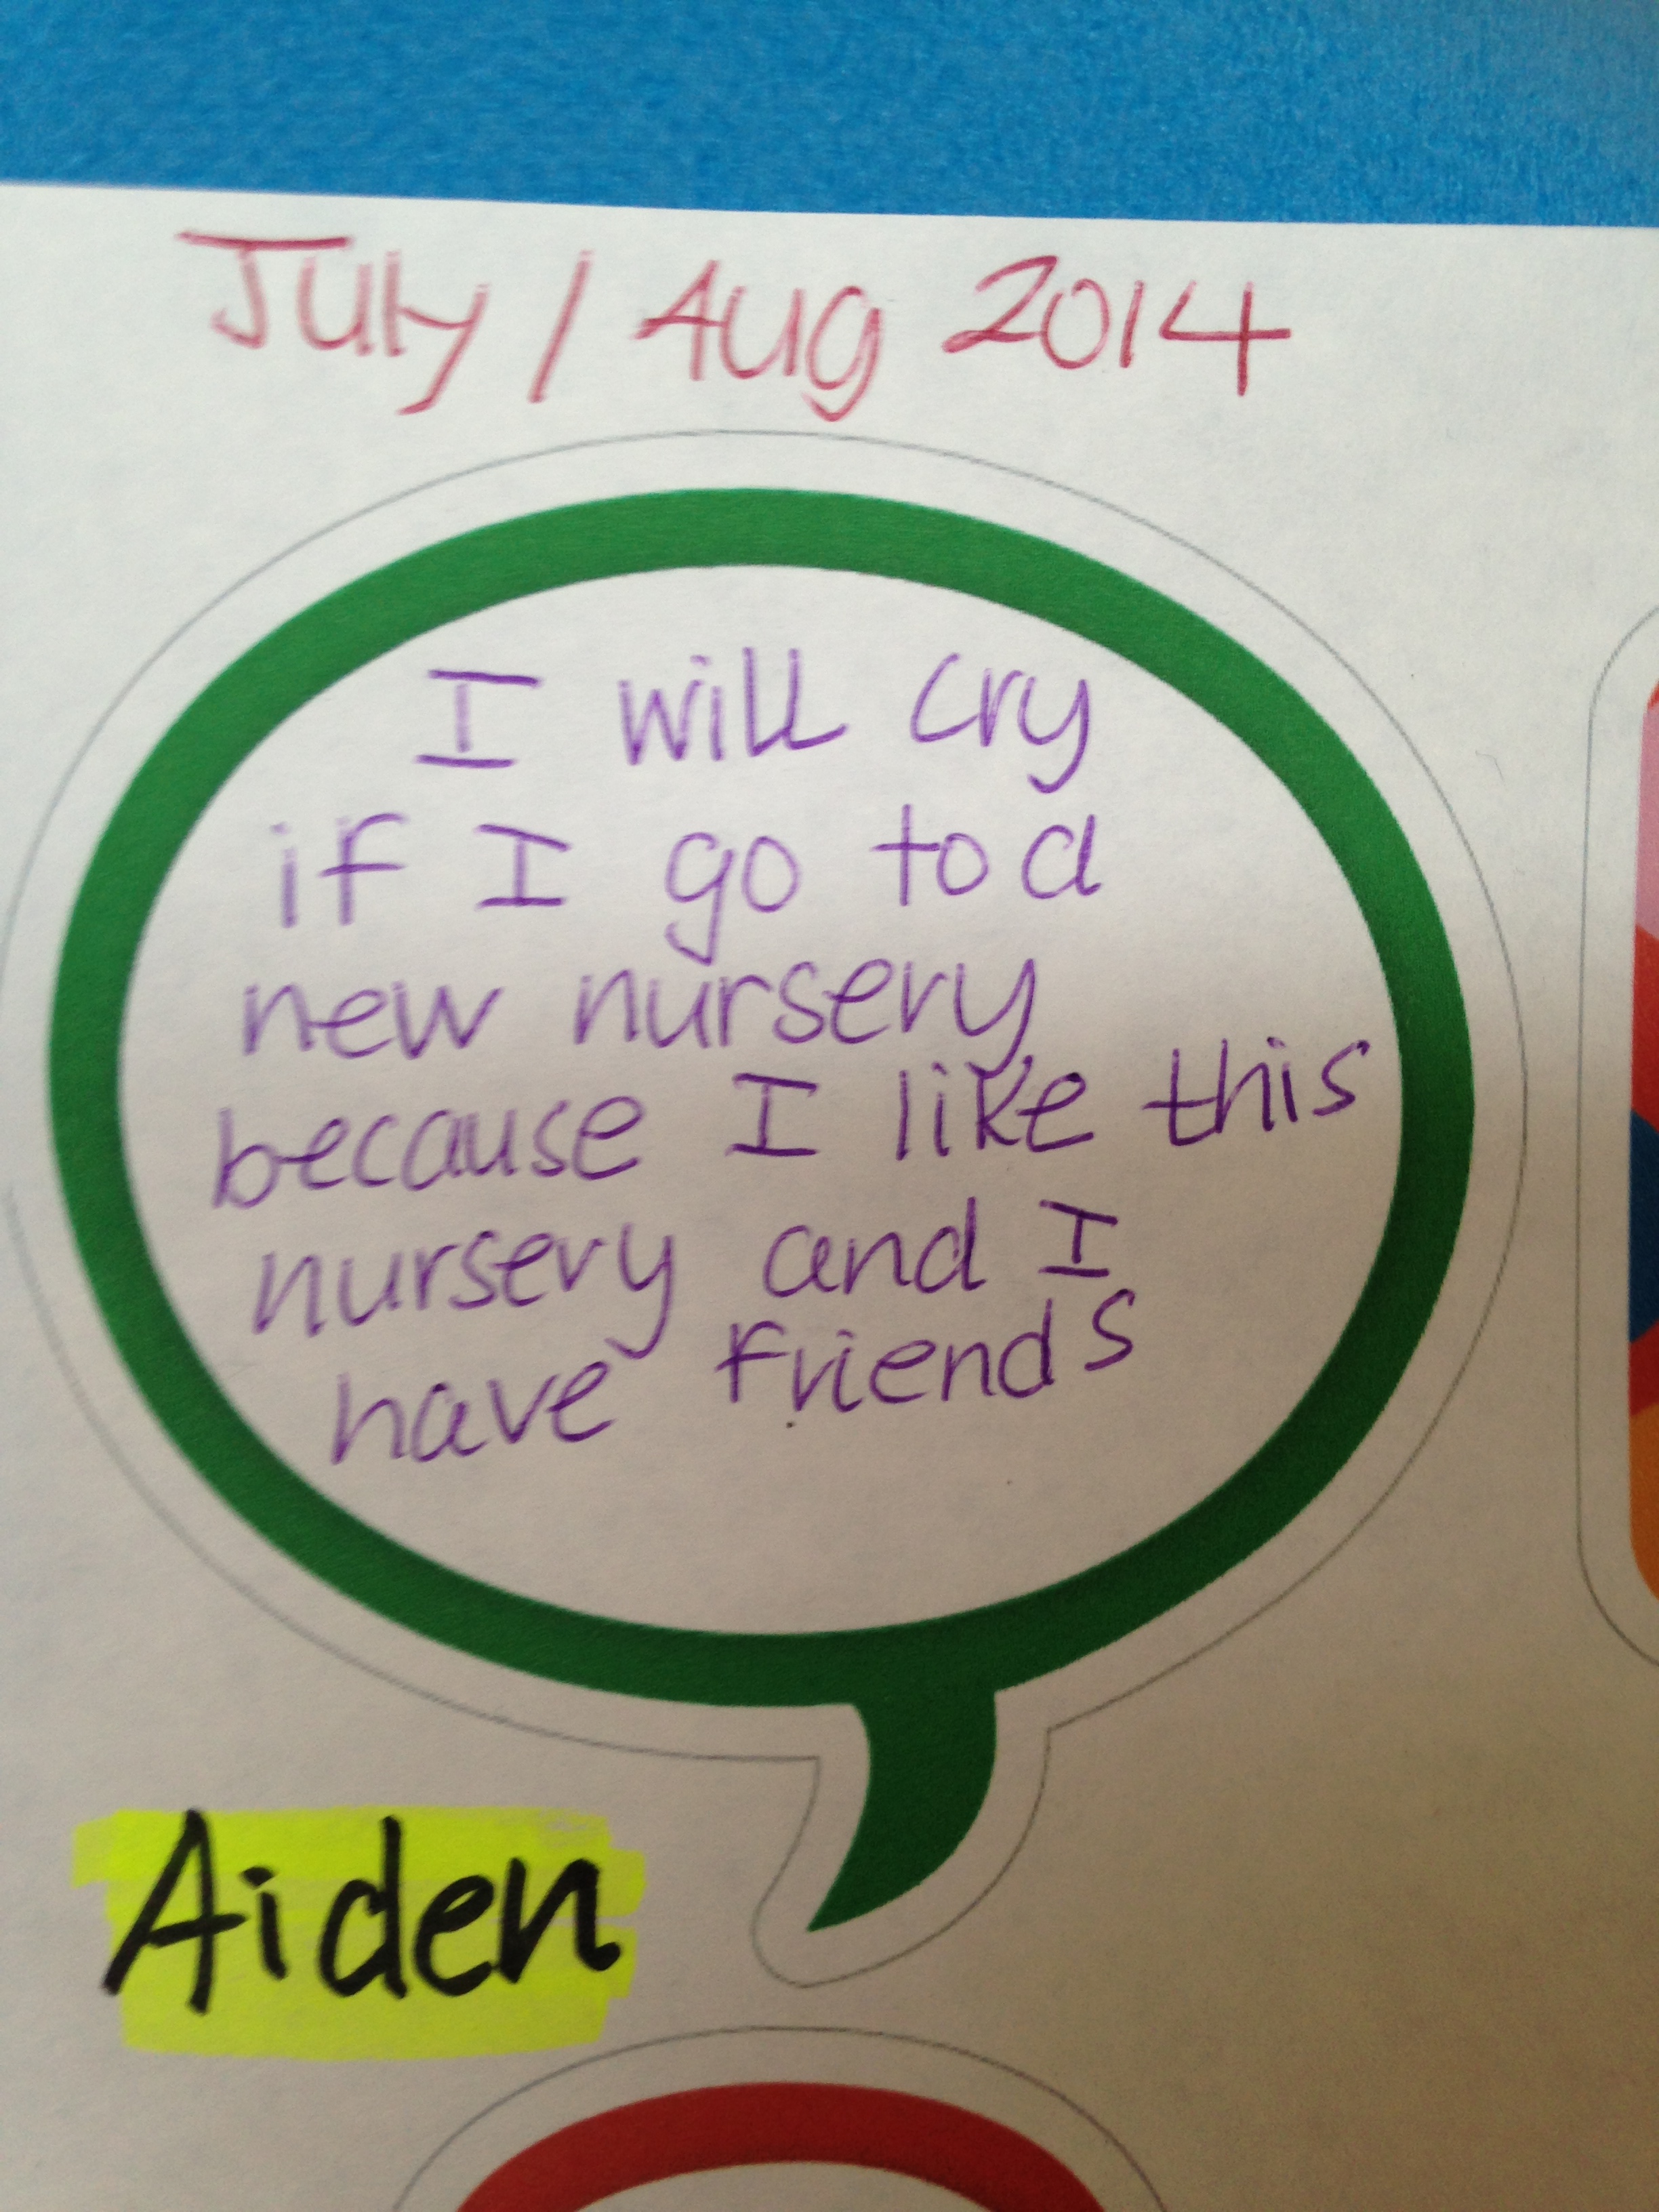 July / Aug 2014
I will cry
if I go to a
new nursery
because I like this
nursery and I
have friends
Aiden